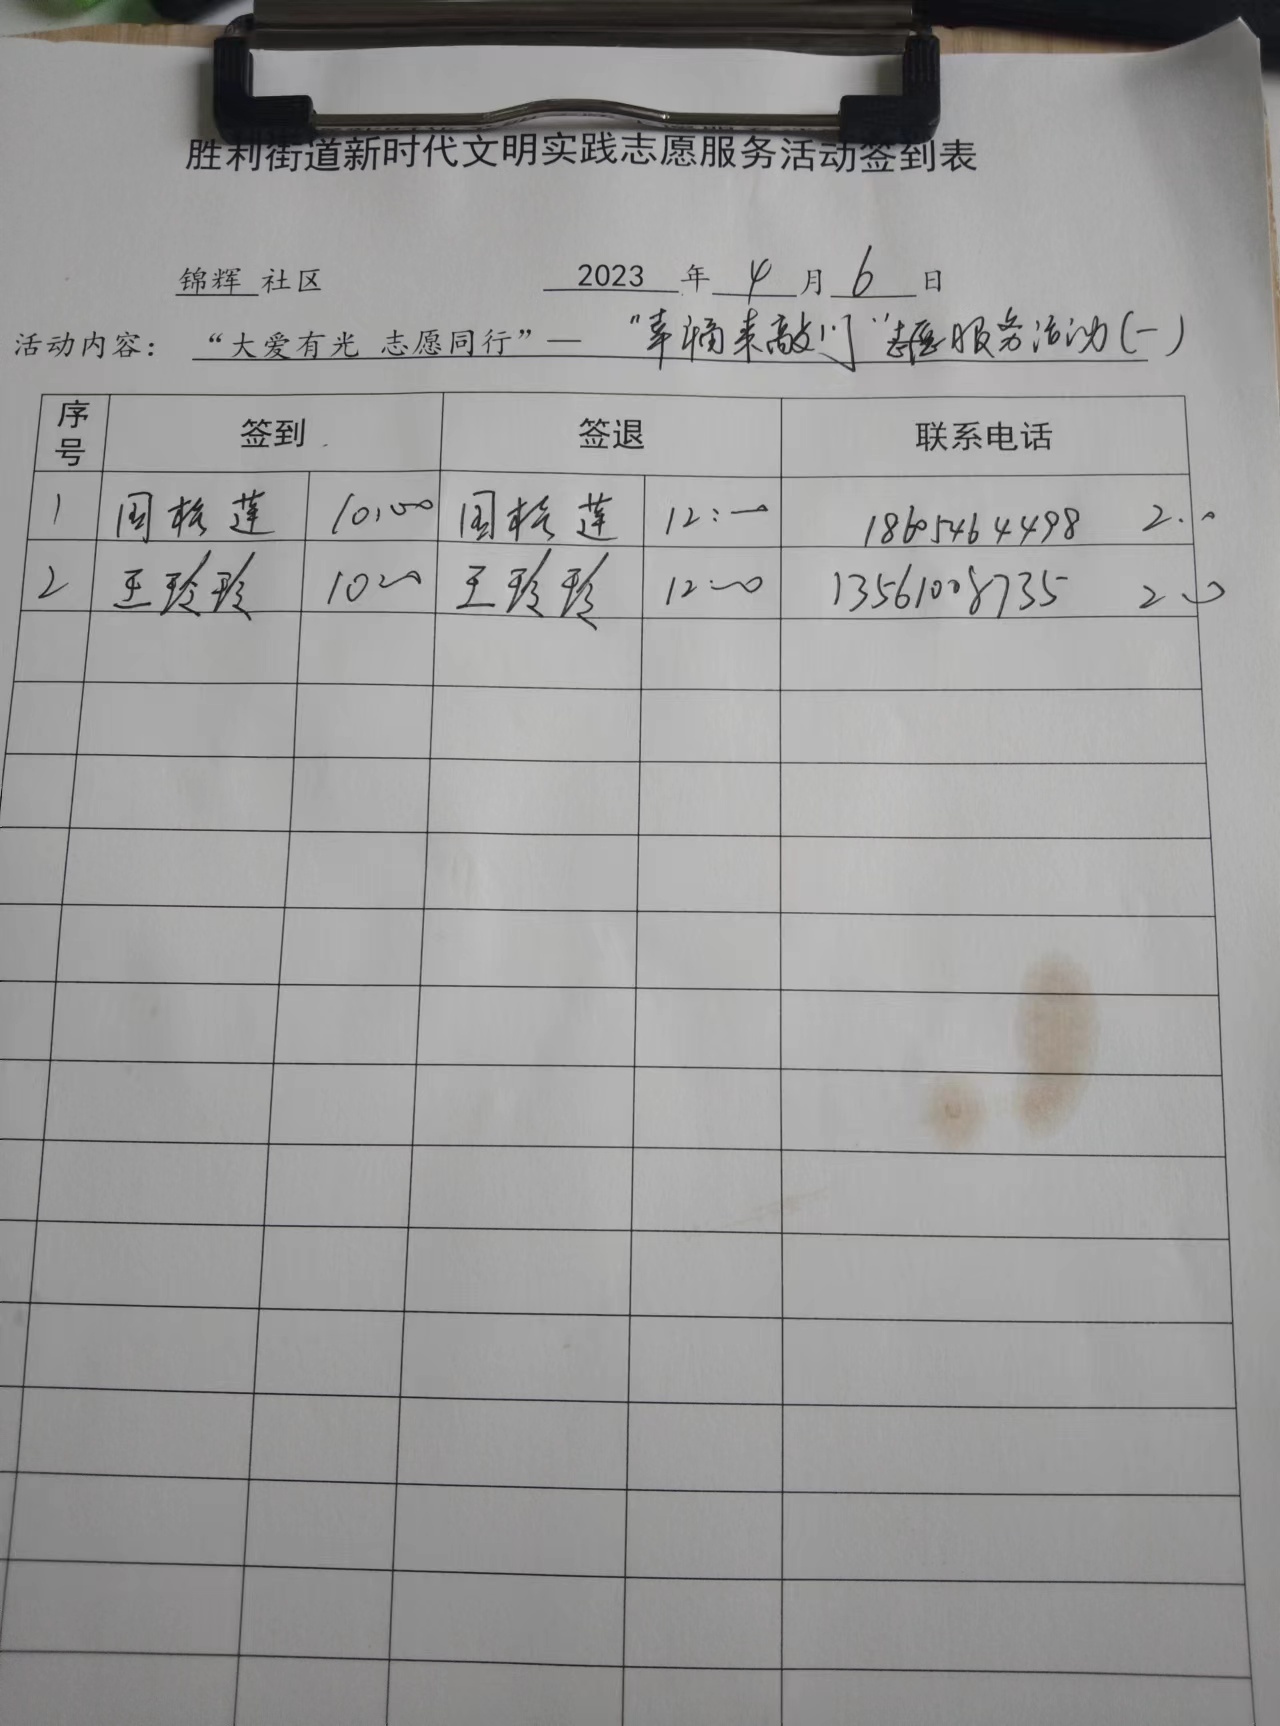 胜利街道新时代文明实践志愿服务活动签到表
锦辉 社区 2023 年 4 月 6 日
活动内容： “大爱有光 志愿同行”— “幸福来敲门”志愿服务活动(一)
序号 签到 签退 联系电话
1 周桂莲 10:00 周桂莲 12:00 18605464498 2.0
2 王玲玲 1000 王玲玲 12:00 13561008735 2.0